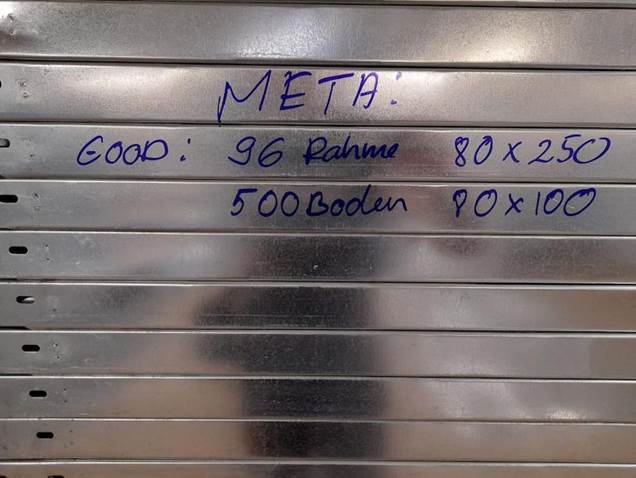 META:
GOOD: 96 Rahme 80 x 250
500 Boden 80 x 100